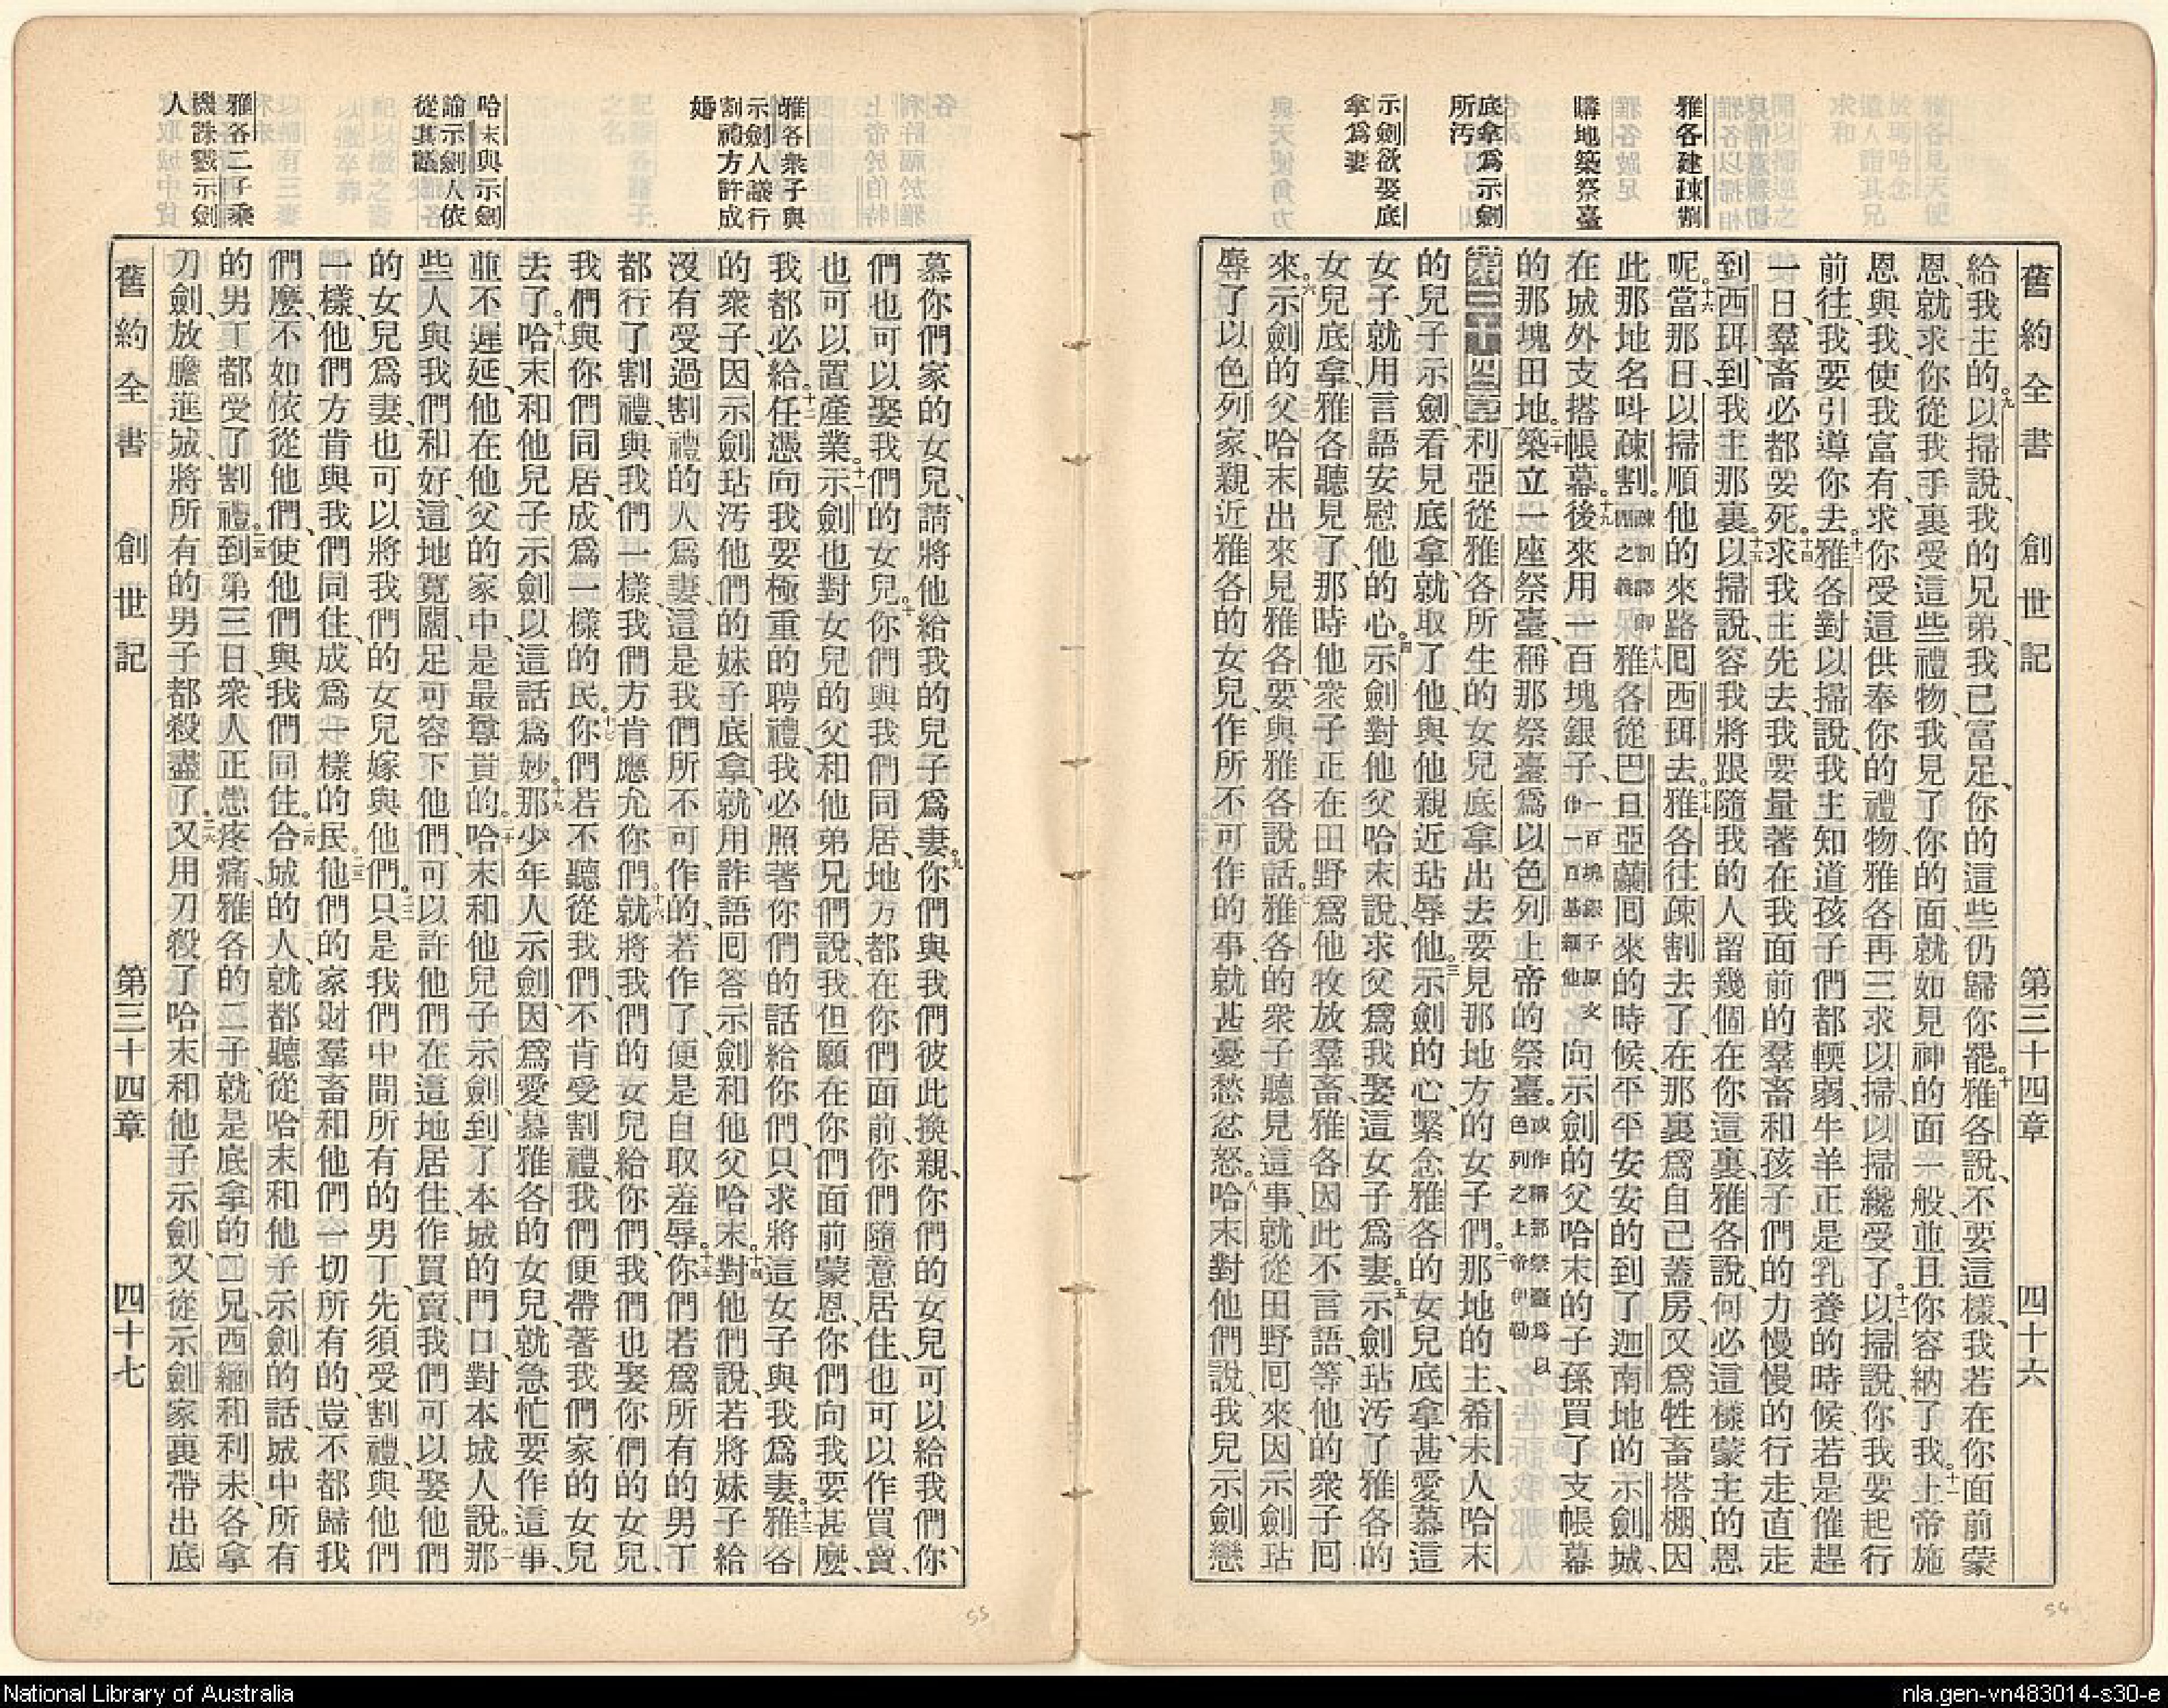 舊約全書 創世記 第三十四章 四十六
雅各建疎割
購地築祭臺
底拿爲示劍
所污
示劍欲娶底
拿爲妻
給我主的。九以掃說、我的兄弟、我已富足、你的這些仍歸你罷。十雅各說、不要這樣、我若在你面前蒙
恩、就求你從我手裏受這些禮物、我見了你的面、就如見神的面一般、並且你容納了我。十一上帝施
恩與我、使我富有、求你受這供奉你的禮物、雅各再三求以掃、以掃纔受了。十二以掃說、你我要起行
前往、我要引導你去。十三雅各對以掃說、我主知道孩子們都輭弱、牛羊正是乳養的時候、若是催趕
一日、羣畜必都要死。十四求我主先去、我要量著在我面前的羣畜和孩子們的力慢慢的行走、直走
到西珥、到我主那裏。十五以掃說、容我將跟隨我的人留幾個在你這裏、雅各說、何必這樣、蒙主的恩
呢。十六當那日、以掃順他的來路囘西珥去。十七雅各往疎割去了、在那裏爲自己蓋房、又爲牲畜搭棚、因
此那地名呌疎割。疎割譯卽棚之義十八雅各從巴旦亞蘭囘來的時候、平平安安的到了迦南地的示劍城、
在城外支搭帳幕。十九後來用一百塊銀子、一百塊銀子原文作一百基錫他向示劍的父哈末的子孫買了支帳幕
的那塊田地。二十築立一座祭臺、稱那祭臺爲以色列上帝的祭臺。或作稱那祭臺爲以色列之上帝伊勒
第三十四章 一利亞從雅各所生的女兒底拿、出去要見那地方的女子們。二那地的主、希未人哈末
的兒子示劍、看見底拿、就取了他、與他親近玷辱他。三示劍的心、繫念雅各的女兒底拿、甚愛慕這
女子、就用言語安慰他的心。四示劍對他父哈末說、求父爲我娶這女子爲妻。五示劍玷汚了雅各的
女兒底拿、雅各聽見了、那時他衆子正在田野爲他牧放羣畜、雅各因此不言語、等他的衆子囘
來。六示劍的父哈末出來見雅各、要與雅各說話。七雅各的衆子聽見這事、就從田野囘來、因示劍玷
辱了以色列家、親近雅各的女兒、作所不可作的事、就甚憂愁忿怒。八哈末對他們說、我兒示劍戀
雅各衆子與
示劍人議行
割禮方許成
婚
哈末與示劍
諭示劍人依
從其議
雅各二子乘
機誅戮示劍
人
慕你們家的女兒、請將他給我的兒子爲妻。九你們與我們彼此換親、你們的女兒可以給我們、你
們也可以娶我們的女兒。十你們與我們同居、地方都在你們面前、你們隨意居住、也可以作買賣、
也可以置產業。十一示劍也對女兒的父和他弟兄們說、我但願在你們面前蒙恩、你們向我要甚麽、
我都必給。十二任憑向我要極重的聘禮、我必照著你們的話給你們、只求將這女子與我爲妻。十三雅各
的衆子、因示劍玷汚他們的妹子底拿、就用詐語囘答示劍和他父哈末。十四對他們說、若將妹子給
沒有受過割禮的人爲妻、這是我們所不可作的、若作了、便是自取羞辱。十五你們若爲所有的男丁
都行了割禮、與我們一樣、我們方肯應允你們。十六就將我們的女兒給你們、我們也娶你們的女兒、
我們與你們同居、成爲一樣的民。十七你們若不聽從我們、不肯受割禮、我們便帶著我們家的女兒
去了。十八哈末和他兒子示劍、以這話爲妙。十九那少年人示劍、因爲愛慕雅各的女兒、就急忙要作這事、
並不遲延、他在他父的家中、是最尊貴的。二十哈末和他兒子示劍、到了本城的門口、對本城人說。二一那
些人與我們和好、這地寬闊、足可容下他們、可以許他們在這地居住作買賣、我們可以娶他們
的女兒爲妻、也可以將我們的女兒嫁與他們。二二只是我們中間所有的男丁、先須受割禮、與他們
一樣、他們方肯與我們同住、成爲一樣的民。二三他們的家財羣畜和他們一切所有的、豈不都歸我
們麽、不如依從他們、使他們與我們同住。二四合城的人、就都聽從哈末和他子示劍的話、城中所有
的男丁都受了割禮。二五到第三日、衆人正患疼痛、雅各的二子、就是底拿的二兄、西緬和利未、各拿
刀劍、放膽進城、將所有的男子都殺盡了。二六又用刀殺了哈末和他子示劍、又從示劍家裏帶出底
舊約全書 創世記 第三十四章 四十七
55
54
National Library of Australia
nla.gen-vn483014-s30-e